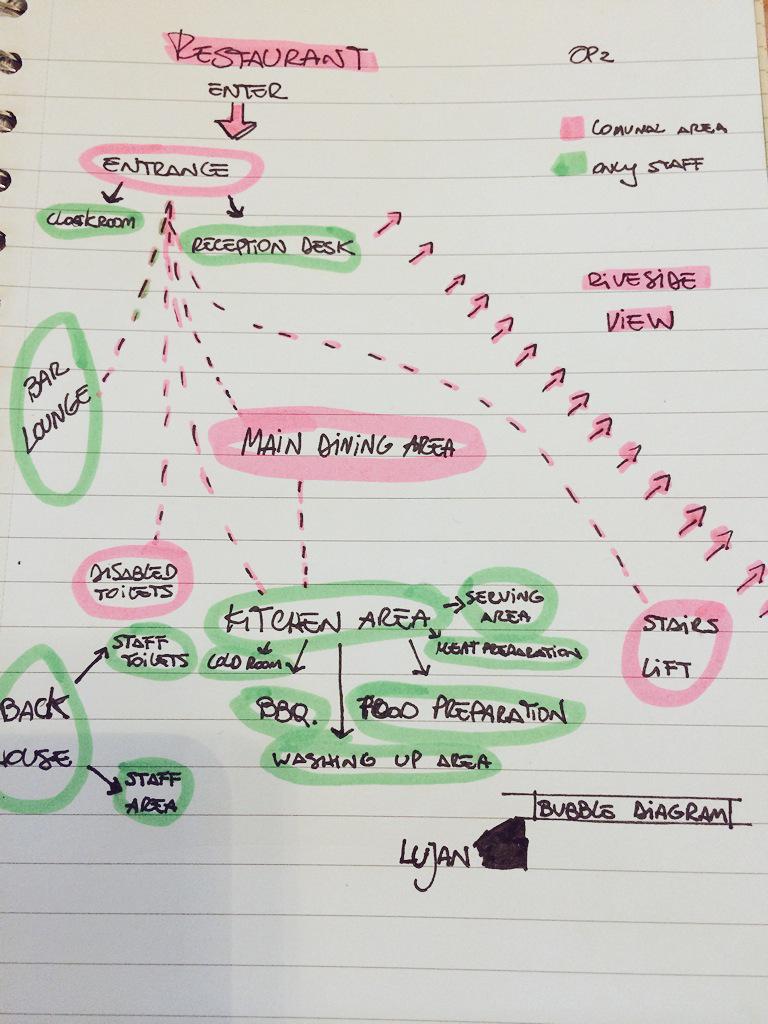 RESTAURANT
OP2
ENTER
COMUNAL AREA
ONLY STAFF
ENTRANCE
CLOAKROOM
RECEPTION DESK
RIVESIDE
VIEW
BAR
LOUNGE
MAIN DINING AREA
DISABLED
TOILETS
KITCHEN AREA
SERVING
AREA
STAIRS
LIFT
STAFF
TOILETS
COLD ROOM
MEAT PREPARATION
BACK
HOUSE
BBQ.
FOOD PREPARATION
WASHING UP AREA
STAFF
AREA
BUBBLE DIAGRAM
LUJAN